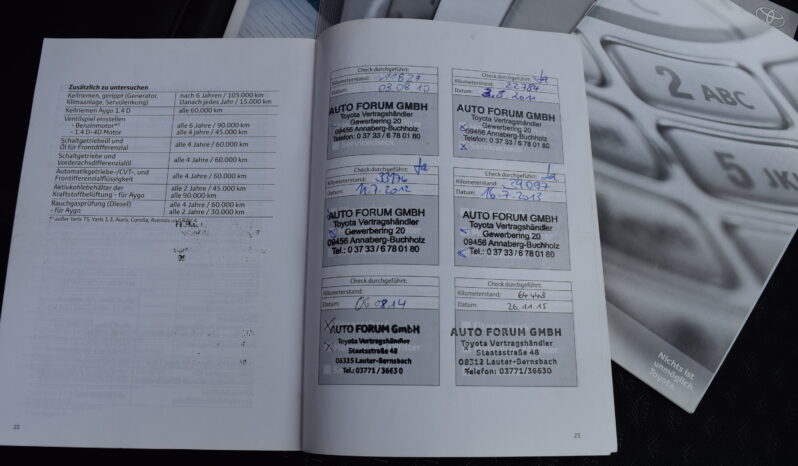 Zusätzlich zu untersuchen
Keilriemen, gerippt (Generator, Klimaanlage, Servolenkung) nach 6 Jahren / 105.000 km
Danach jedes Jahr / 15.000 km
Keilriemen Aygo 1.4 D alle 60.000 km
Ventilspiel einstellen
- Benzinmotor*¹ alle 6 Jahre / 90.000 km
- 1.4 D-4D Motor alle 4 Jahre / 45.000 km
Schaltgetriebeöl und
Öl für Frontdifferenzial alle 4 Jahre / 60.000 km
Schaltgetriebe und
Vorderachsdifferenzialöl alle 4 Jahre / 60.000 km
Automatikgetriebe-/CVT-, und
Frontdifferenzialflüssigkeit alle 4 Jahre / 60.000 km
Aktivkohlebehälter der alle 2 Jahre / 45.000 km
Kraftstoffbelüftung - für Aygo alle 90.000 km
Rauchgasprüfung (Diesel) alle 4 Jahre / 60.000 km
- für Aygo alle 2 Jahre / 30.000 km
22
Check durchgeführt:
Kilometerstand: 11829
Datum: 03 08 10
AUTO FORUM GMBH
Toyota Vertragshändler
Gewerbering 20
09456 Annaberg-Buchholz
Telefon: 0 37 33 / 6 78 01 80
Check durchgeführt: Ja
Kilometerstand: 22784
Datum: 3.8.2011
AUTO FORUM GMBH
Toyota Vertragshändler
Gewerbering 20
09456 Annaberg-Buchholz
Telefon: 0 37 33 / 6 78 01 80
Check durchgeführt: Ja
Kilometerstand:
Datum: 11.7.2012
AUTO FORUM GMBH
Toyota Vertragshändler
Gewerbering 20
09456 Annaberg-Buchholz
Tel.: 0 37 33 / 6 78 01 80
Check durchgeführt: Ja
Kilometerstand: 29097
Datum: 16.7.2013
AUTO FORUM GMBH
Toyota Vertragshändler
Gewerbering 20
09456 Annaberg-Buchholz
Tel.: 0 37 33 / 6 78 01 80
Check durchgeführt:
Kilometerstand:
Datum: 06 08 14
AUTO FORUM GmbH
Toyota Vertragshändler
Staatsstraße 48
08315 Lauter-Bernsbach
Tel.: 03771 / 3663 0
Check durchgeführt:
Kilometerstand: 64448
Datum: 26.11.15
AUTO FORUM GMBH
Toyota Vertragshändler
Staatsstraße 48
08312 Lauter-Bernsbach
Telefon: 03771/36630
23
2 ABC
5 JK
Nichts ist
unmöglich.
Toyota.